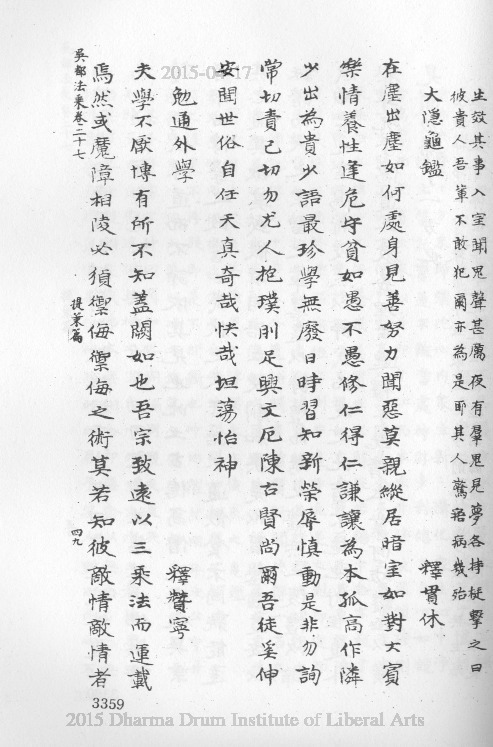 生效其事入室聞鬼聲甚厲夜有羣鬼見夢各持梃擊之曰
彼貴人吾輩不敢犯爾亦為是耶其人驚寤病幾殆
大隱龜鑑 釋貫休
在塵出塵如何處身見善努力聞惡莫親縱居暗室如對大賓
樂情養性逢危守貧如愚不愚修仁得仁謙讓為本孤高作隣
少出為貴少語最珍學無廢日時習知新榮辱慎動是非勿詢
常切責己切勿尤人抱璞刖足興文厄陳古賢尚爾吾徒奚伸
安閒世俗自任天真奇哉快哉坦蕩怡神
勉通外學 釋贊寧
夫學不厭博有所不知蓋闕如也吾宗致遠以三乘法而運載
焉然或魔障相陵必須禦侮禦侮之術莫若知彼敵情敵情者
吳都法乘卷二十七 提策篇 四九
3359
2015-04-17
2015 Dharma Drum Institute of Liberal Arts